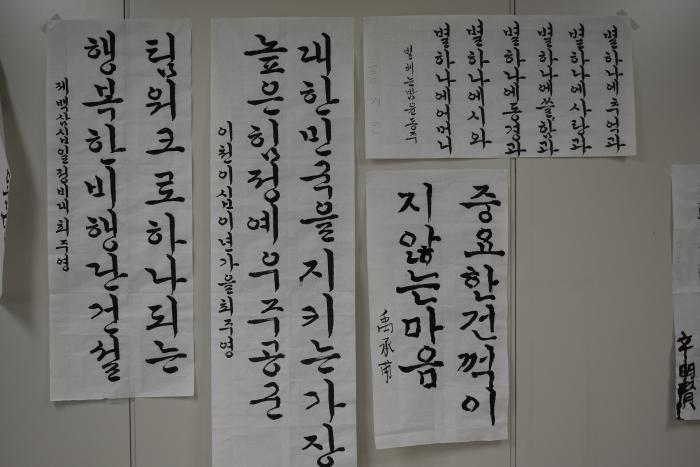 팀워크로하나되는
행복한비행단건설
제백삼십일정비대최주영
대한민국을지키는가장
높은힘정예우주공군
이천이십이년가을최주영
별하나에추억과
별하나에사랑과
별하나에쓸함과
별하나에동경과
별하나에시와
별하나에어머니
별헤는밤윤동주
중요한건꺾이
지않는마음
禹承甫
辛明賢